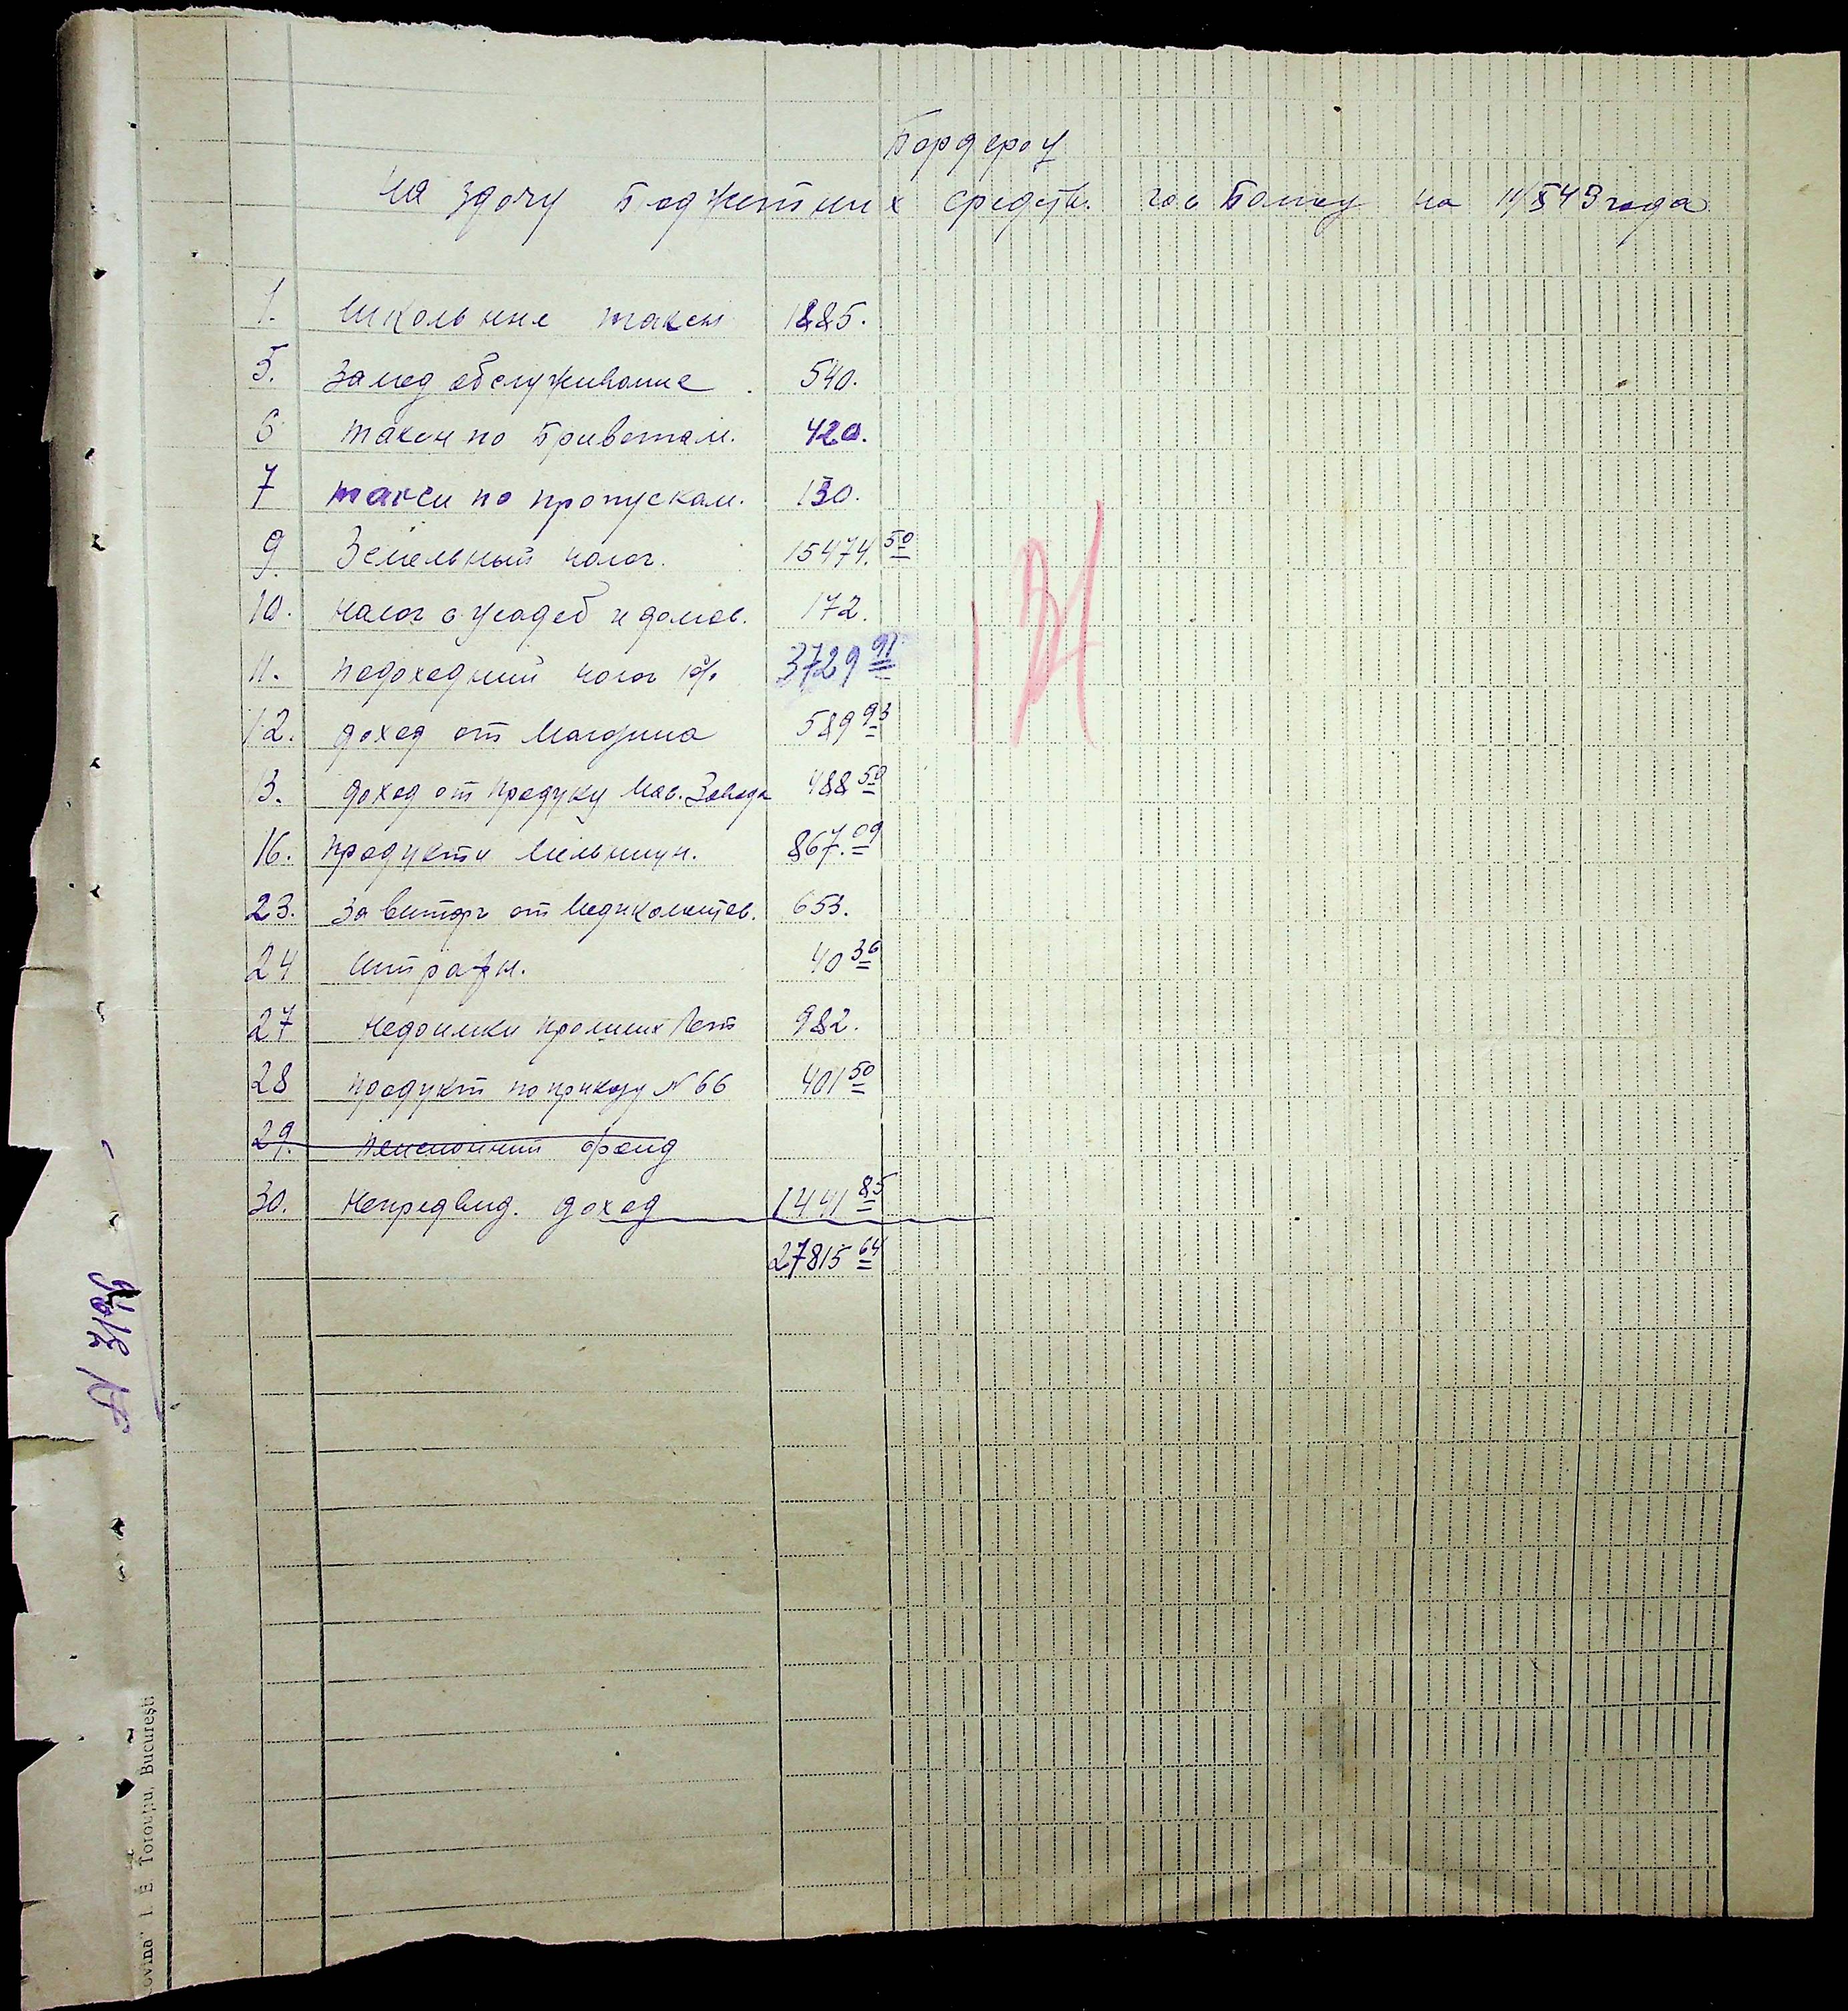 Бордероу
на здачу Боджетних средств. гос Банку на 11/X 43 года
1. Школьние такси 1885.
5. За мед обслуживание 540.
6 такси по Приветам. 420.
7 такси по пропускам. 130.
9. Земельный налог. 15474.50
10. налог с усадеб и домов. 172.
11. подоходний налог 10% 3729 91
12. доход от Магазина 589 93
13. доход от продукц Мас. Завода 488 50
16. продукти мельници. 867.09
23. За виторг от Медикаментов. 653.
24 Штрафи. 40 36
27 недоимки прошлих Лет 982.
28 продукт по приказу N 66 401 50
29. пенсионний фонд
30. Непредвид. доход 1441 85
27815 64
ovina" I. E. Torouțiu, București